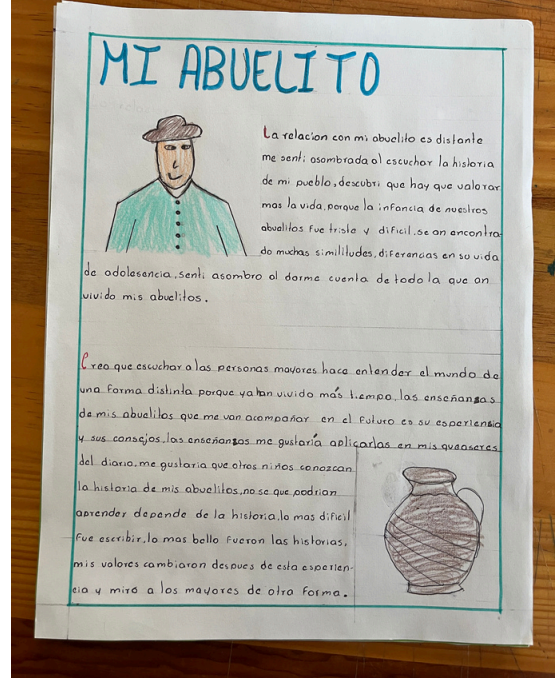 MI ABUELITO
La relacion con mi abuelito es distante
me senti asombrada al escuchar la historia
de mi pueblo, descubri que hay que valorar
mas la vida, porque la infancia de nuestros
abuelitos fue triste y dificil. se an encontra-
do muchas similitudes, diferencias en su vida
de adolesencia, senti asombro al darme cuenta de todo la que an
vivido mis abuelitos.
Creo que escuchar a las personas mayores hace entender el mundo de
una forma distinta porque ya han vivido más tiempo, las enseñanzas
de mis abuelitos que me van acompañar en el futuro es su experiencia
y sus consejos, las enseñanzas me gustaría aplicarlas en mis queaseres
del diario, me gustaria que otros niños conozcan
la historia de mis abuelitos, no se que podrian
aprender depende de la historia, lo mas dificil
fue escribir, lo mas bello fueron las historias,
mis valores cambiaron despues de esta experien-
cia y miro a los mayores de otra forma.